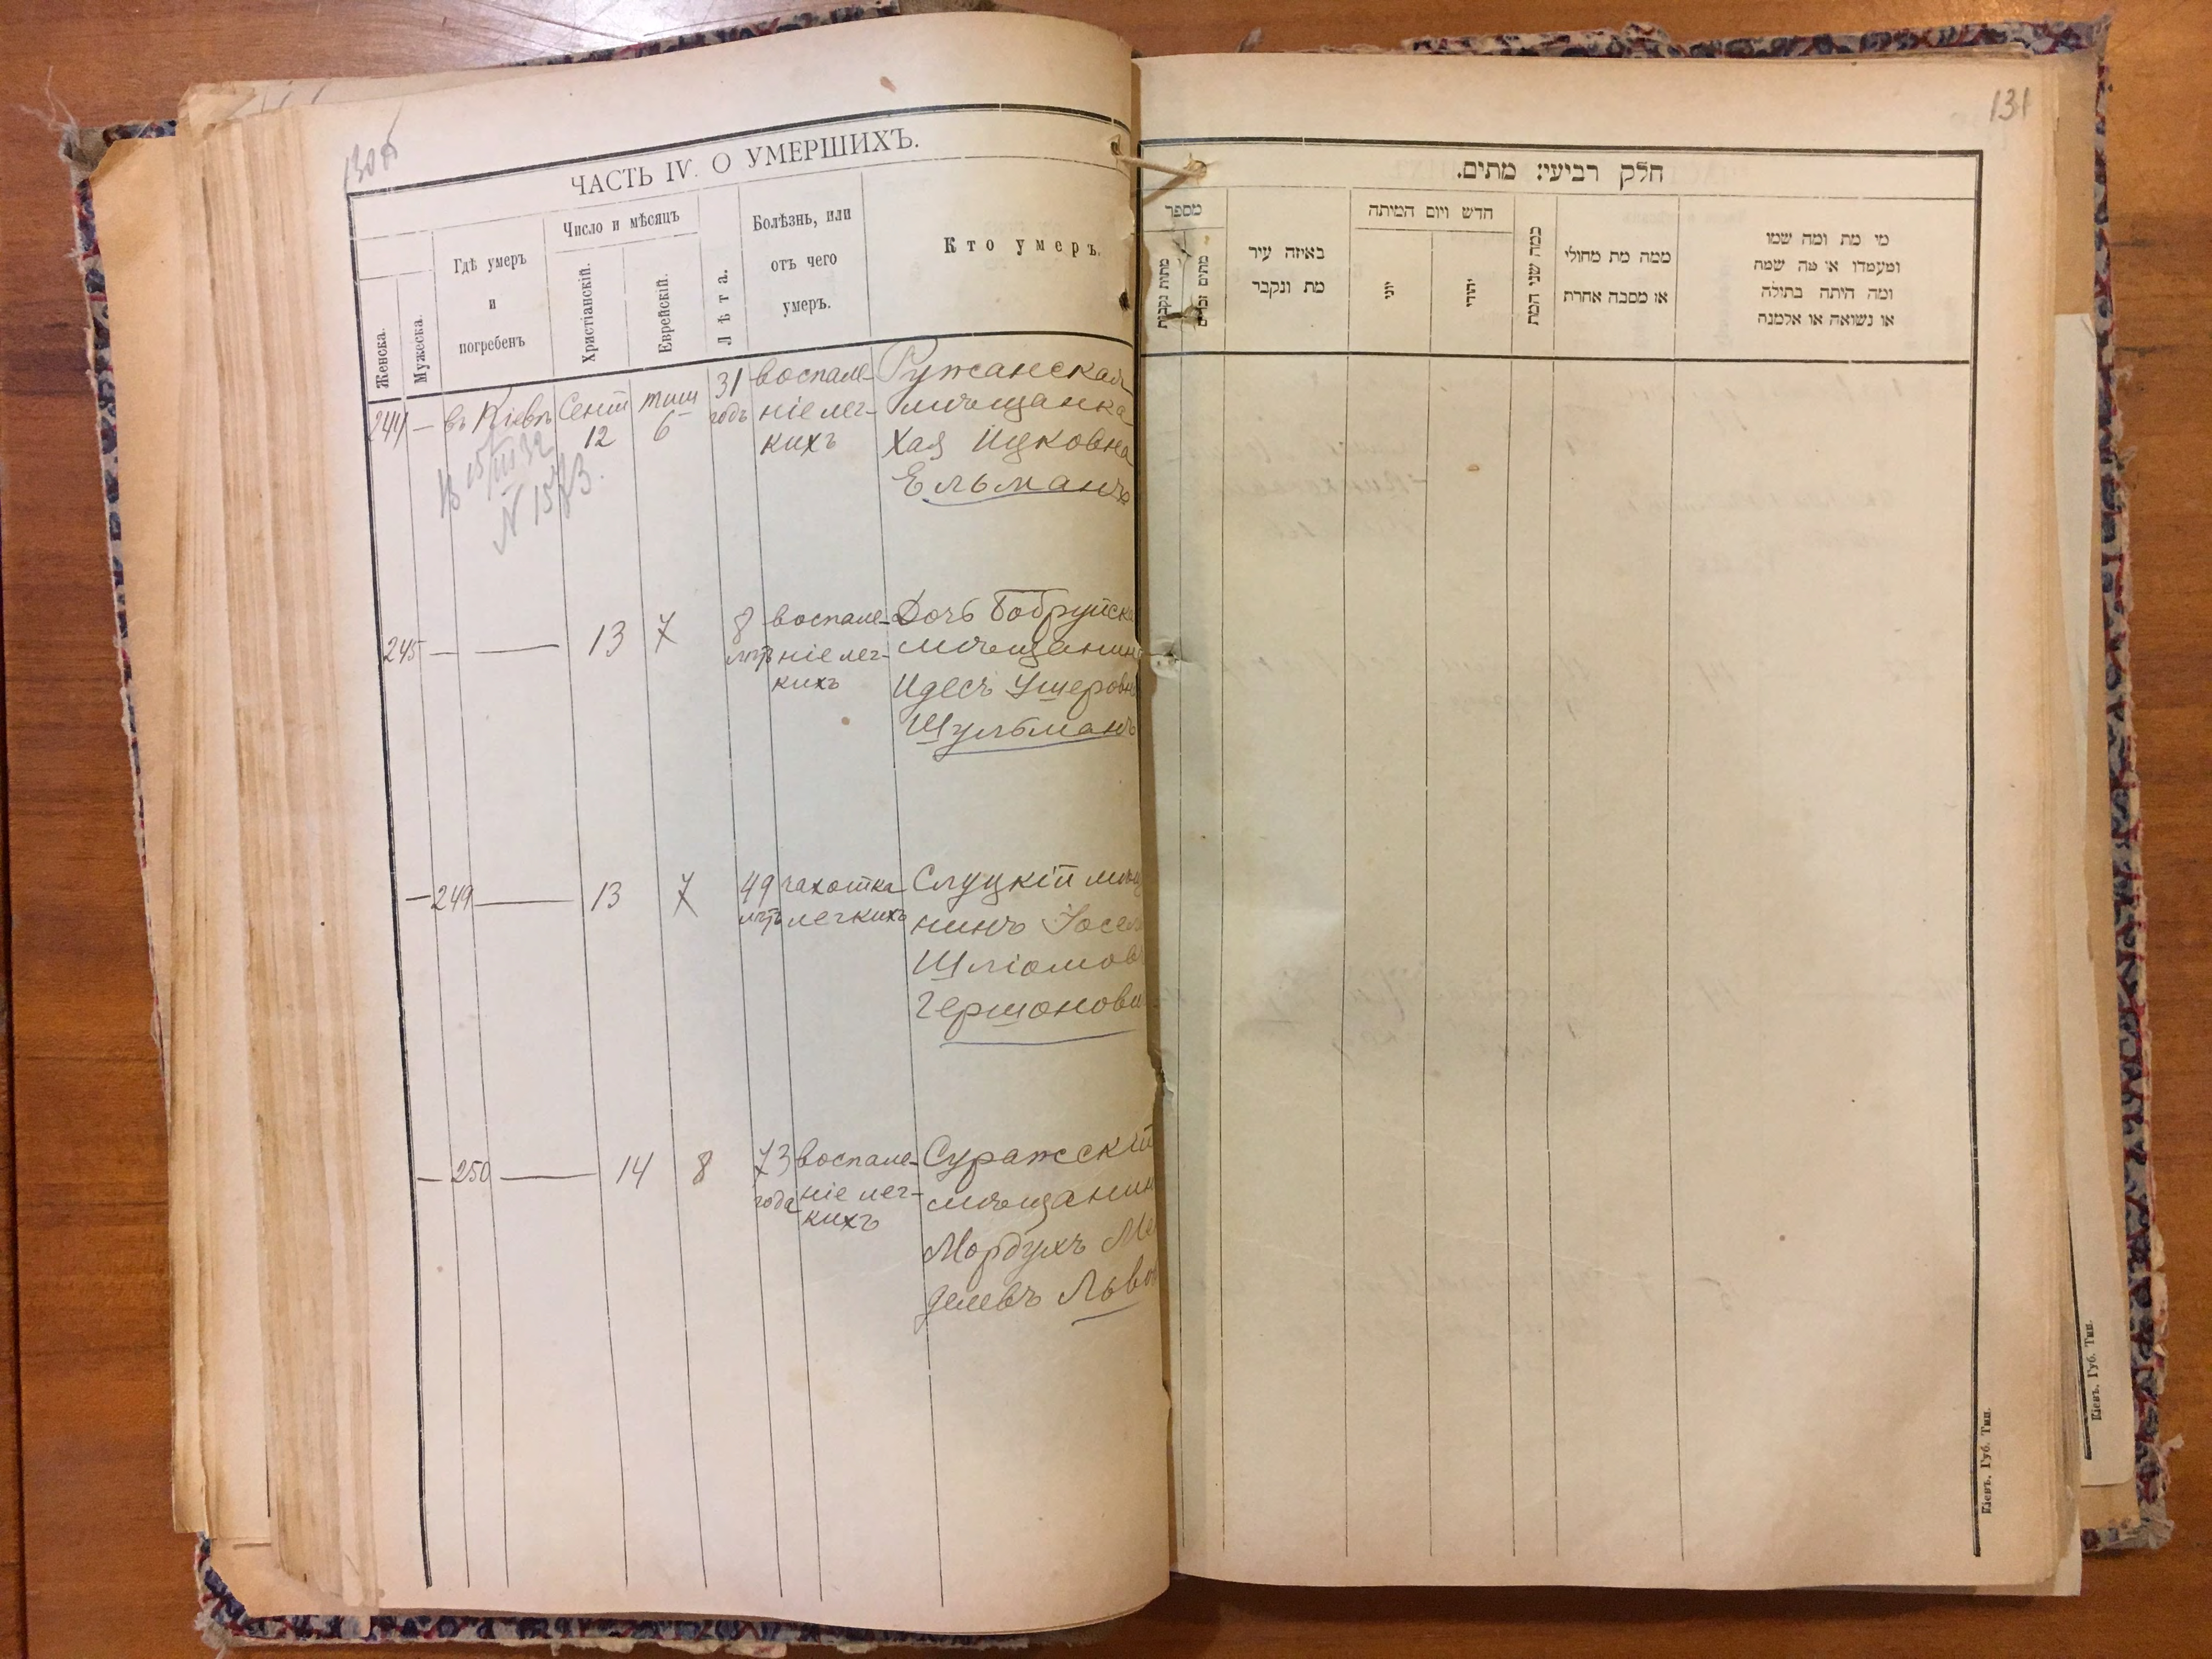 ЧАСТЬ IV. О УМЕРШИХЪ.
Женска.
Мужеска.
Гдѣ умеръ
и
погребенъ
Число и мѣсяцъ
Христіанскій.
Еврейскій.
Лѣта.
Болѣзнь, или
отъ чего
умеръ.
Кто умеръ.
244 — въ Кіевѣ Сент 12 тиш 6 31 годъ
воспале-
ніе лег-
кихъ
Ружанская
мѣщанка
Хая Ицковна
Ельманъ
15/III 32
N 1573.
245 — — 13 7 8 лѣтъ
воспале-
ніе лег-
кихъ
Дочь Бобруйск
мѣщанина
Идесъ Ушеровна
Шульманъ
— 249 — 13 7 49 лѣтъ
чахотка
легкихъ
Слуцкій мѣщ
нинъ Іосел
Шліомов
Гершонови
— 250 — 14 8 73 года
воспале-
ніе лег-
кихъ
Суражскій
мѣщанин
Мордухъ Ме
делевъ Льво
131
חלק רביעי: מתים.
מספר
מתות נקבות
מתים זכרים
באיזה עיר
מת ונקבר
חדש ויום המיתה
יוני
יהודי
כמה שני המת
ממה מת מחולי
או מסבה אחרת
מי מת ומה שמו
ומעמדו או מה שמה
ומה היתה בתולה
או נשואה או אלמנה
Кіевъ. Губ. Тип.
Кіевъ. Губ. Тип.